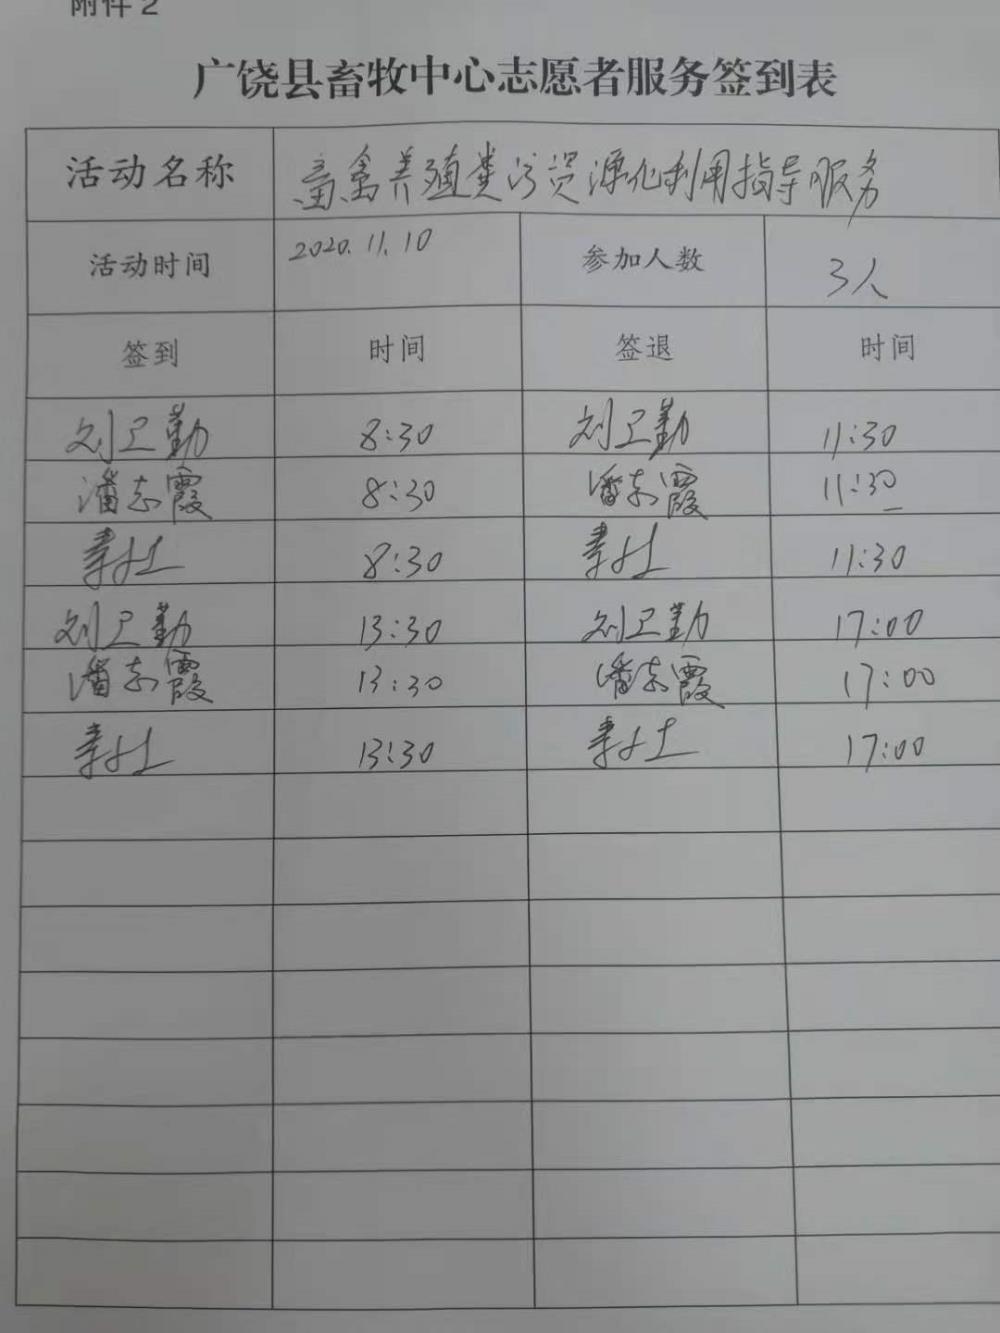 附件2
广饶县畜牧中心志愿者服务签到表
活动名称 畜禽养殖粪污资源化利用指导服务
活动时间 2020.11.10 参加人数 3人
签到 时间 签退 时间
刘卫勤 8:30 刘卫勤 11:30
潘志霞 8:30 潘志霞 11:30
8:30 11:30
刘卫勤 13:30 刘卫勤 17:00
潘志霞 13:30 潘志霞 17:00
13:30 17:00